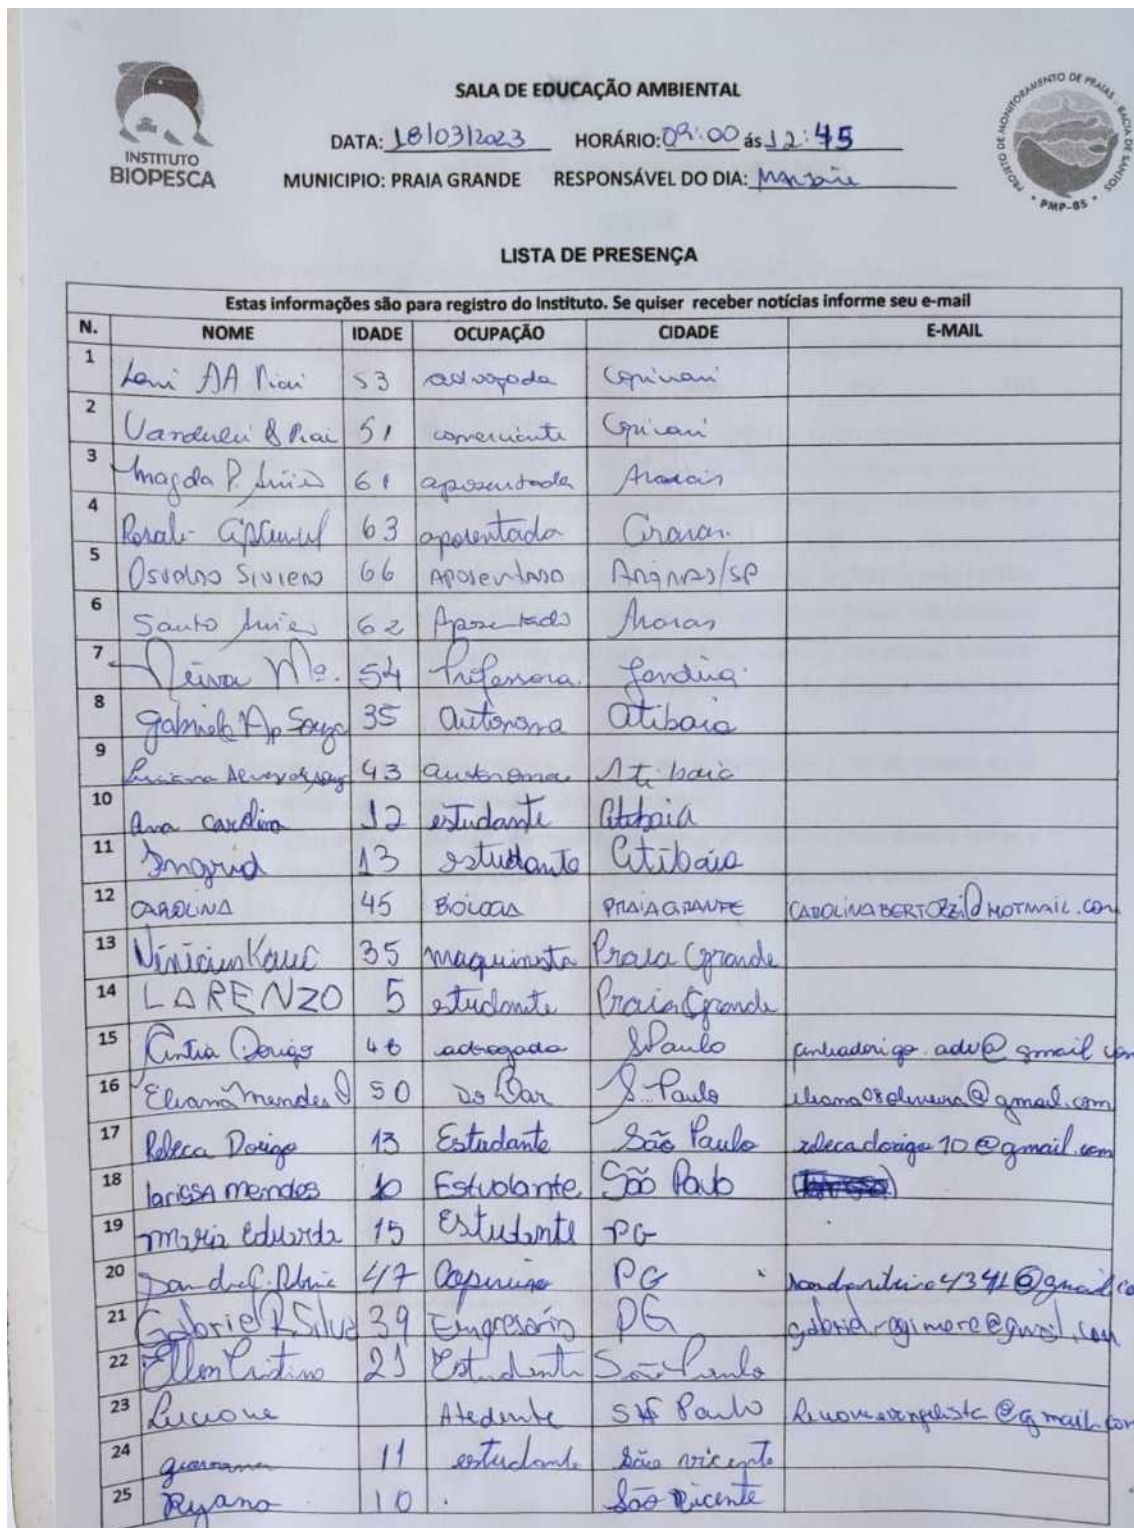 SALA DE EDUCAÇÃO AMBIENTAL
INSTITUTO
BIOPESCA
DATA: 18/03/2023 HORÁRIO: 09:00 ás 12:45
MUNICIPIO: PRAIA GRANDE RESPONSÁVEL DO DIA:
PROJETO DE MONITORAMENTO DE PRAIAS - BACIA DE SANTOS
• PMP-BS •
LISTA DE PRESENÇA
Estas informações são para registro do Instituto. Se quiser receber notícias informe seu e-mail
N. NOME IDADE OCUPAÇÃO CIDADE E-MAIL
1 AA 53 advogada
2 51 comerciante
3 Magda P. 61 aposentada
4 63 aposentada
5 Osvaldo Siviero 66 Aposentado
6 Santo 62 Aposentado Araras
7 Neiva Mª. 54 Professora. Jandira.
8 Gabriela Ap Souza 35 autonoma atibaia
9 Luciana Alves 43 autonoma Atibaia
10 ana carolina 12 estudante atibaia
11 Ingrid 13 estudante Atibaia
12 CAROLINA 45 BIÓLOGA PRAIA GRANDE
13 Vinicius 35 maquinista Praia Grande
14 LARENZO 5 estudante Praia Grande
15 Cintia Dorigo 46 advogada S Paulo cintiadorigo.adv@gmail.com
16 Eliana Mendes O 50 Do Lar S. Paulo eliana08oliveira@gmail.com
17 Rebeca Dorigo 13 Estudante São Paulo rebecadorigo10@gmail.com
18 larissa mendes 10 Estudante São Paulo
19 Maria Eduarda 15 Estudante PG
20 47 PG
21 Gabriel R. Silva 39 Empresário PG
22 Ellen Cristina 21 Estudante São Paulo
23 Atedente Paulo
24 11 estudante São vicente
25 Ryano 10 . São Vicente